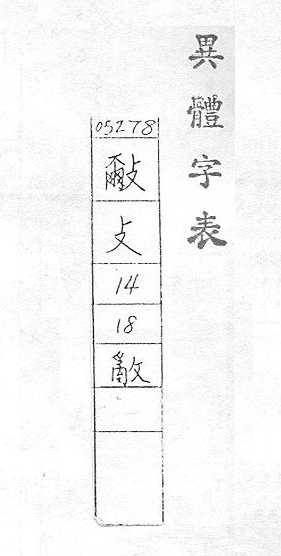 異體字表
05278
攴
14
18